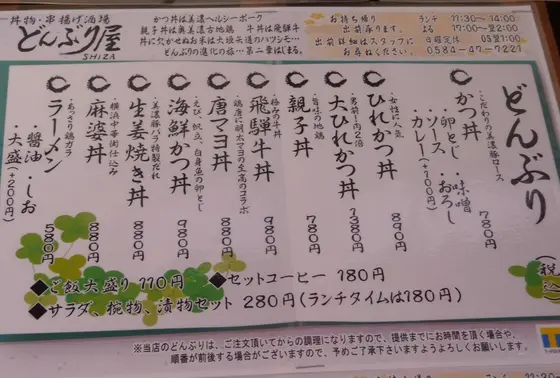 丼物・串揚げ酒場
どんぶり屋
SHIZA
かつ丼は美濃ヘルシーポーク
親子丼は奥美濃古地鶏 牛丼は飛騨牛
丼に欠かせぬお米は大垣矢道のハツシモ…
どんぶりの進化の旅…第二章はじまる。
お持ち帰り
出前承ります。
出前詳細はスタッフに
お尋ねください。
ランチ 11:30~14:00
よる 17:00~翌2:00
0584-47-7221
どんぶり
(税込)
こだわりの美濃豚ロース
かつ丼 780円
・卵とじ・味噌
・ソース・おろし
・カレー(+100円)
女性に人気
ひれかつ丼 890円
男前!肉2倍
大ひれかつ丼 1380円
旨味の地鶏
親子丼 780円
極みの牛丼
飛騨牛丼 980円
鶏唐と明太マヨの至高のコラボ
唐マヨ丼 880円
えび、帆立、白身魚の卵とじ
海鮮かつ丼 880円
美濃豚バラ特製だれ
生姜焼き丼 880円
横浜中華街仕込み
麻婆丼 880円
あっさり鶏ガラ
ラーメン 580円
醤油・しお
大盛(+200円)
◆ご飯大盛り 110円 ◆セットコーヒー 180円
◆サラダ、椀物、漬物セット 280円(ランチタイムは180円)
※当店のどんぶりは、ご注文頂いてからの調理になりますので、提供までにお時間を頂く場合や、
順番が前後する場合がございますので、予めご了承下さいますようよろしくお願いします。